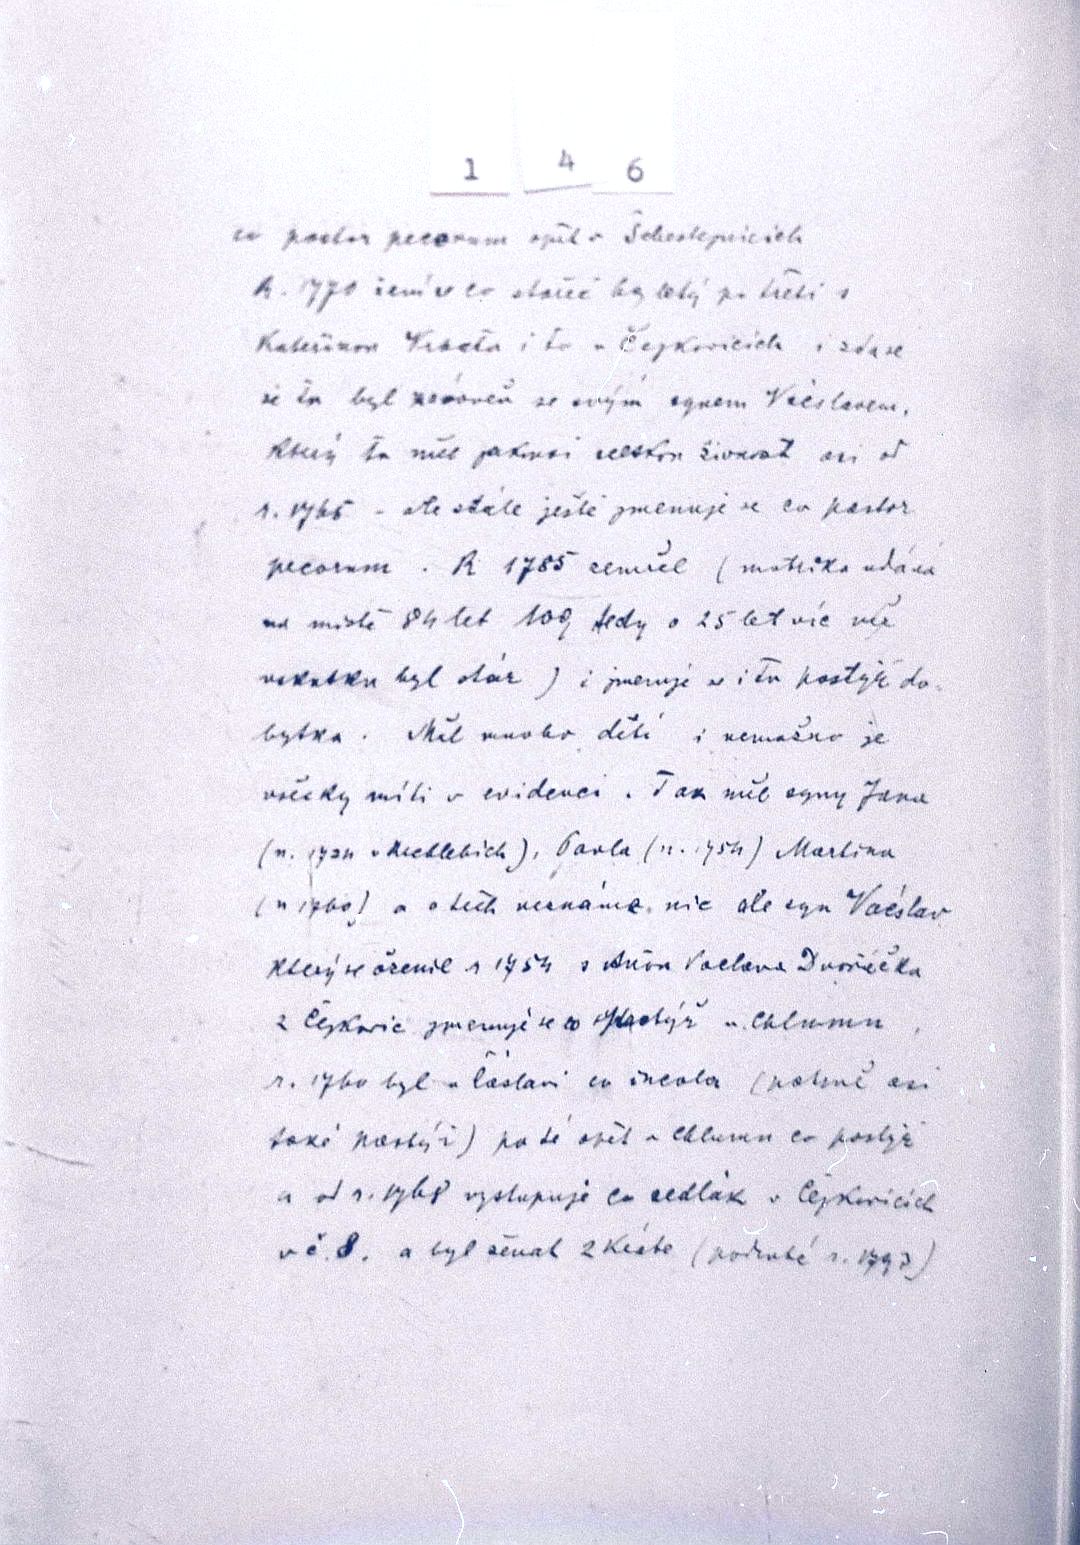 1 4 6
co pastor pecorum opět v Šebestejnicích
R. 1770 žení se co stařec 69 letý po třetí s
Kateřinou i to v Čejkovicích i zdá se
že tu byl zároveň se svým synem Václavem,
který tu měl jakousi selskou živnost asi od
r. 1765 - ale stále ještě jmenuje se co pastor
pecorum . R 1785 zemřel ( matrika udává
na místě 84 let 109 tedy o 25 let víc než
vskutku byl stár ) i jmenuje se i tu pastýř do-
bytka . Měl mnoho dětí i nemožno je
všecky míti v evidenci . Tak měl syny Jana
(n. 1724 v ), Pavla (n. 1754) Martina
(n 1760) a o těch neznáme nic ale syn Václav
který se oženil r 1754 s Annou Václava Dvořáčka
z Čejkovic jmenuje se co pastýř v Chlumu ,
r. 1760 byl v Čáslavi co incola (patrně asi
také pastýř) po té opět v Chlumu co pastýř
a od r. 1768 vystupuje co sedlák v Čejkovicích
v č. 8. a byl ženat 2 kráte (podruhé r. )